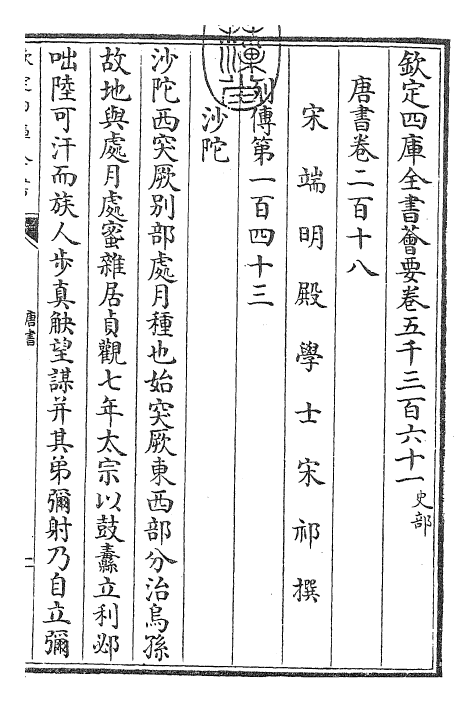 欽定四庫全書薈要卷五千三百六十一史部
唐書卷二百十八
宋端明殿學士宋祁撰
列傳第一百四十三
沙陀
沙陀西突厥别部處月種也始突厥東西部分治烏孫
故地與處月處蜜雜居貞觀七年太宗以鼓纛立利邲
咄陸可汗而族人步真觖望謀并其弟彌射乃自立彌
唐書